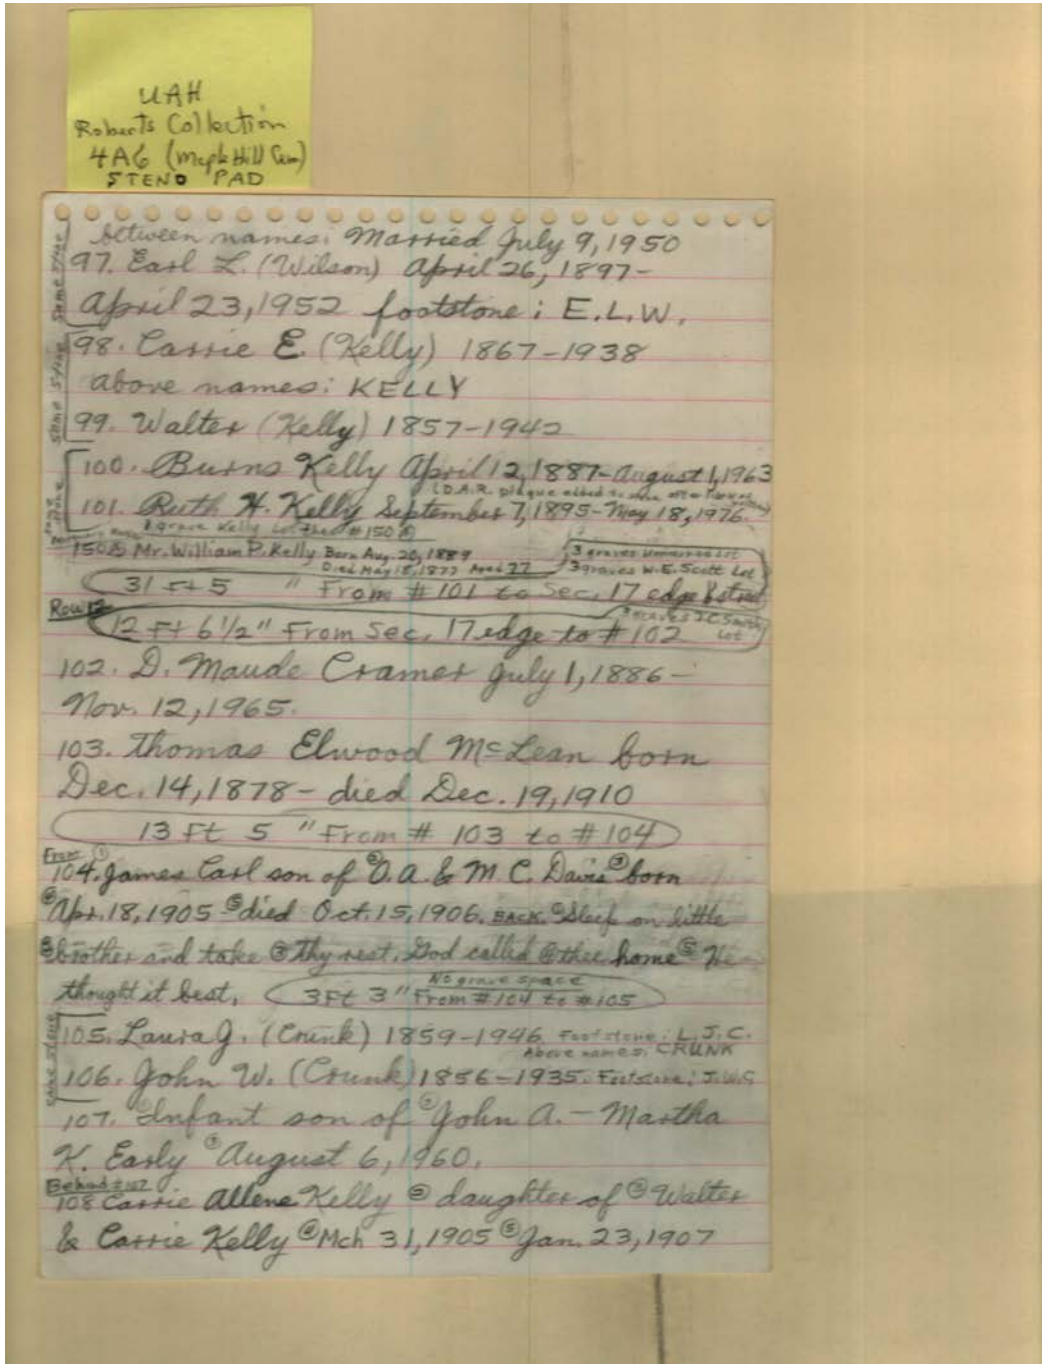 UAH
Roberts Collection
4A6 (Maple Hill Cem)
STENO PAD
between names: Married July 9, 1950
97. Earl L. (Wilson) April 26, 1897-
April 23, 1952 footstone: E.L.W.
same stone
98. Carrie E. (Kelly) 1867-1938
above names: KELLY
99. Walter (Kelly) 1857-1942
same stone
100. Burns Kelly April 12, 1887-August 1, 1963
(D.A.R. plaque added to stone after
101. Ruth H. Kelly September 7, 1895-May 18, 1976.
same stone
grave Kelly Lot #150
150 Mr. William P. Kelly Born Aug. 20, 1889
Died May 18, 1977 Aged
3 graves Lot
3 graves W.E. Scott Lot
31 Ft 5 " From #101 to Sec. 17 edge &
Row 12
graves J.C. Smith Lot
12 Ft 6 1/2" From Sec. 17 edge to #102
102. D. Maude Cramer July 1, 1886-
Nov. 12, 1965.
103. Thomas Elwood McLean born
Dec. 14, 1878- died Dec. 19, 1910
13 Ft 5 " From # 103 to #104
Front ①
104. James Carl son of ② O.A. & M.C. Davis ③ born
④ Apr. 18, 1905 ⑤ died Oct. 15, 1906. BACK. ① Sleep on little
② brother and take ③ thy rest, God called ④ thee home ⑤ He
thought it best.
No grave space
3Ft 3" From #104 to #105
105. Laura J. (Crunk) 1859-1946 Footstone: L.J.C.
Above names: CRUNK
same stone
106. John W. (Crunk) 1856-1935. Footstone: J.W.C
107. Infant son of ② John A. - Martha
K. Early ③ August 6, 1960.
Behind #107
108 Carrie Allene Kelly ② daughter of ③ Walter
& Carrie Kelly ④ Mch 31, 1905 ⑤ Jan. 23, 1907